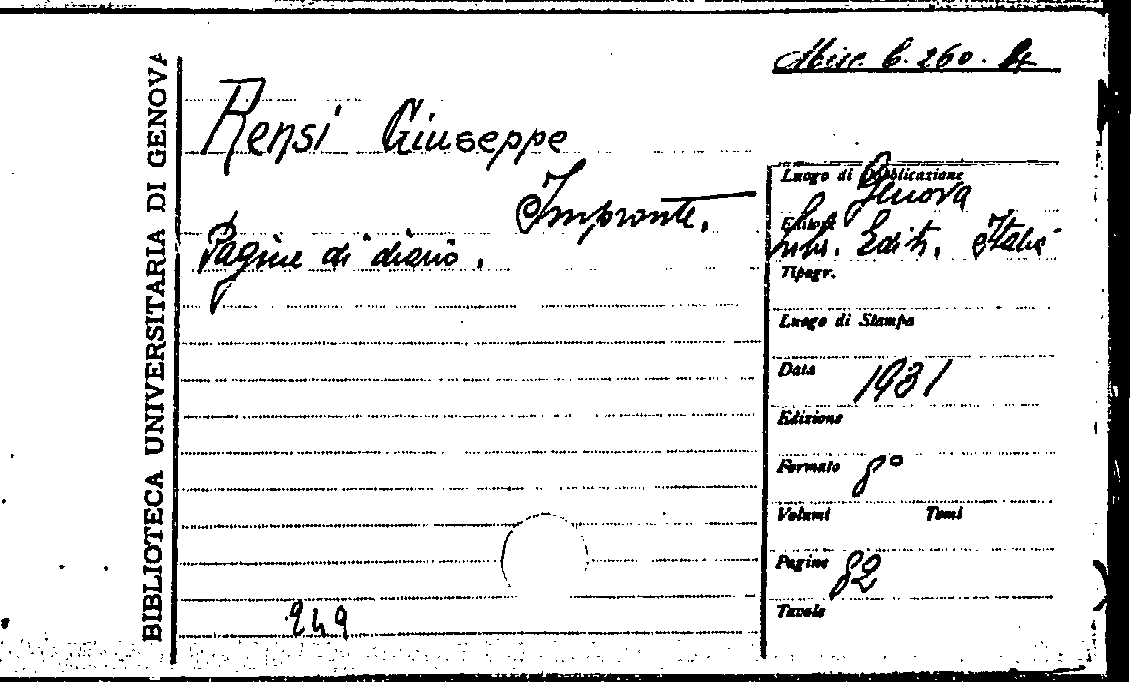 BIBLIOTECA UNIVERSITARIA DI GENOVA
Misc. C. 260. 14
Rensi Giuseppe
Impronte.
Pagine di diario.
Luogo di Pubblicazione Genova
Editore Libr. Edit. Italia
Tipogr.
Luogo di Stampa
Data 1931
Edizione
Formato 8°
Volumi Tomi
Pagine 82
Tavole
249